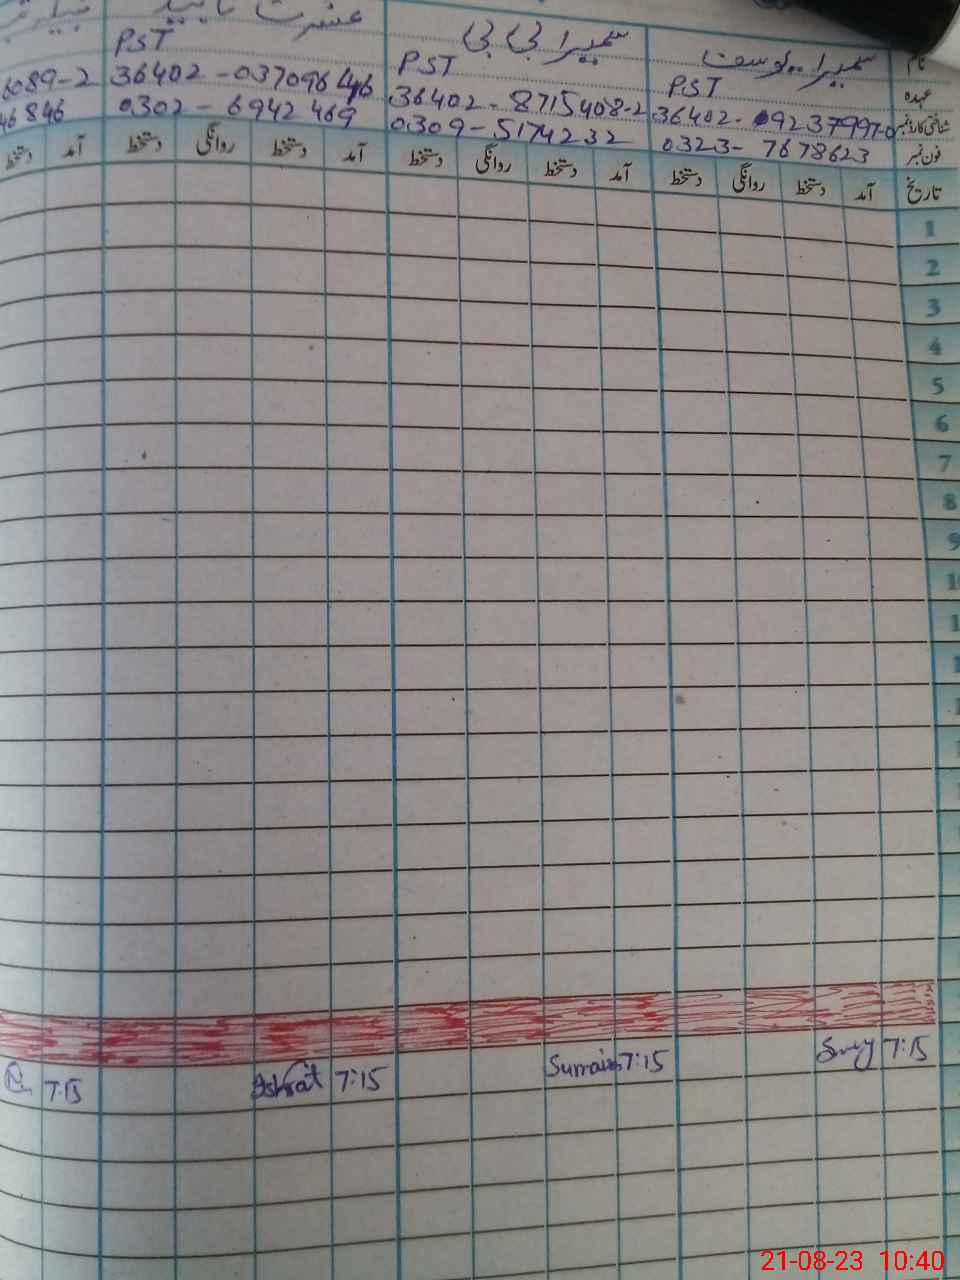 نام سمیرا یوسف سمیرا بی بی عشرت
عہدہ PST PST PST
شناختی کارڈ نمبر 36402-8715408-2
فون نمبر 0323-7678623 0309-5174232 0302-6942469 46846
تاریخ آمد دستخط روانگی دستخط آمد دستخط روانگی دستخط آمد دستخط روانگی دستخط آمد دستخط
1
2
3
4
5
6
7
8
9
7:15 7:15 Sumaira 7:15 Ishrat 7:15
21-08-23 10:40